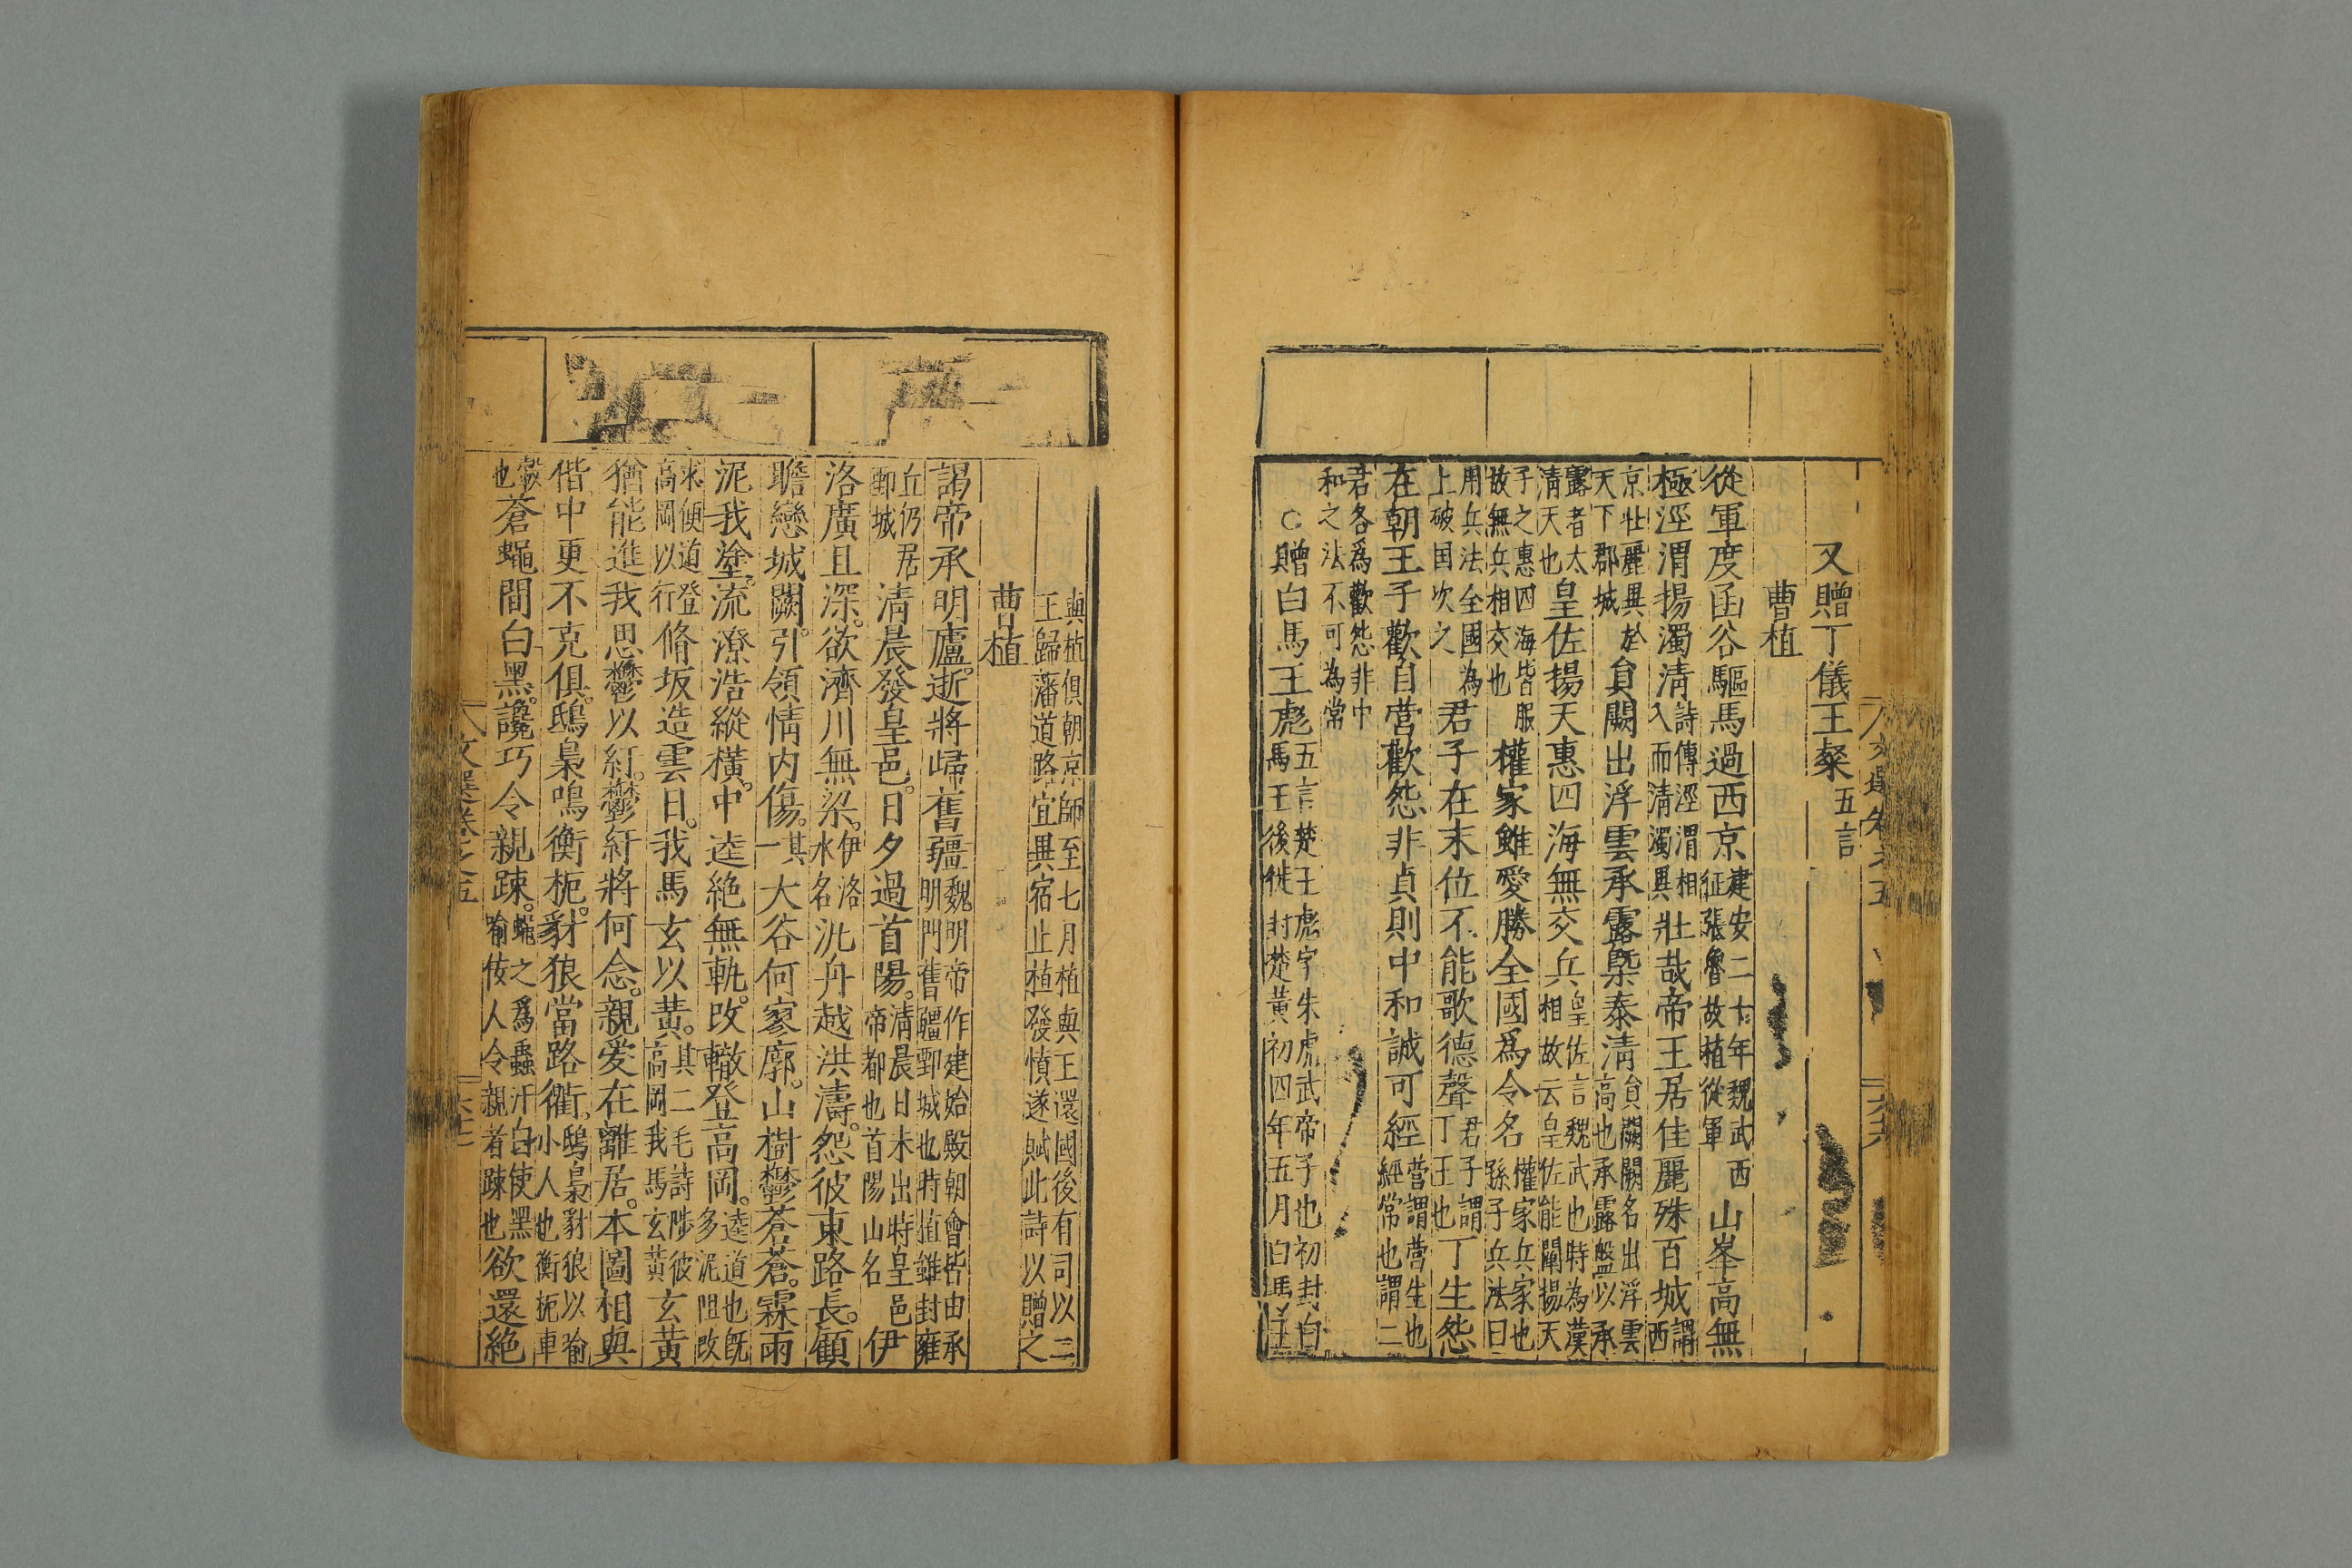 文選卷之五
又贈丁儀王粲五言
曹植
從軍度函谷驅馬過西京建安二十年魏武西征張魯故植從軍山岑高無
極涇渭揚濁清詩傳涇渭相入而清濁異壯哉帝王居佳麗殊百城謂西
京壯麗異於天下郡城員闕出浮雲承露槩泰清員闕闕名出浮雲高也承露盤以承
露者太清天也皇佐揚天惠四海無交兵皇佐言魏武也時為漢相故云皇佐能闡揚天
子之惠四海皆服故無兵相交也權家雖愛勝全國爲令名權家兵家也孫子兵法曰
用兵法全國為上破国次之君子在末位不能歌德聲君子謂丁王也丁生怨
在朝王子歡自営歡怨非貞則中和誠可經营謂营生也經常也謂二
君各爲歡怨非中和之法不可為常
○贈白馬王彪五言楚王彪字朱虎武帝子也初封白馬王後徙封楚黃初四年五月白馬王
與植俱朝京師至七月植與王還國後有司以二王歸藩道路宜異宿止植發憤遂賦此詩以贈之
曹植
謁帝承明廬。逝將歸舊疆魏明帝作建始殿朝會皆由承明門舊疆鄄城也時植雖封雍
丘仍居鄄城清晨發皇邑。日夕過首陽。清晨日未出時皇邑帝都也首陽山名伊
洛廣且深。欲濟川無梁。伊洛水名汎舟越洪濤。怨彼東路長。顧
瞻戀城闕。引領情内傷。其一大谷何寥廓。山樹鬱蒼蒼。霖雨
泥我塗。流潦浩縱橫。中逵絶無軌。改轍登高岡。逵道也旣多泥阻改
求便道登高岡以行脩坂造雲日。我馬玄以黄。其二毛詩陟彼高岡我馬玄黃玄黃
猶能進我思鬱以紆。鬱紆將何念。親爱在離居。本圖相與
偕中更不克俱。鴟梟鳴衡枙。豺狼當路衢。鴟梟豺狼以喻小人也衡枙車
轂也蒼蠅間白黑。讒巧令親踈。蠅之爲蟲汙白使黑喻佞人令親者踈也欲還絶
文選卷之五